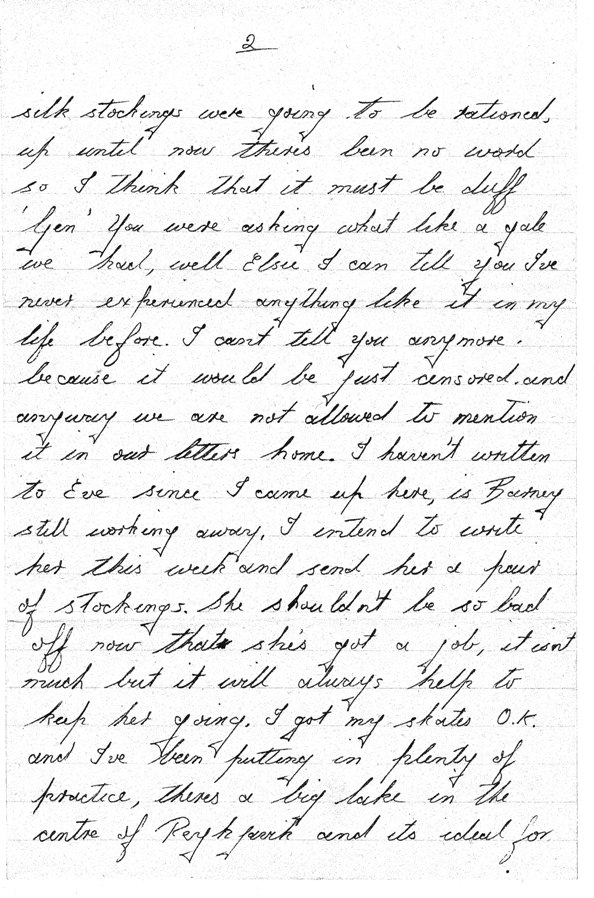 2
silk stockings were going to be rationed,
up until now theres been no word
so I think that it must be duff
'Gen' You were asking what like a gale
we had, well Elsie I can tell you I've
never experienced anything like it in my
life before. I can't tell you anymore.
because it would be just censored. and
anyway we are not allowed to mention
it in our letters home. I haven't written
to Eve since I came up here, is Barney
still working away. I intend to write
her this week and send her a pair
of stockings. She shouldn't be so bad
off now that she's got a job, it isn't
much but it will always help to
keep her going. I got my skates O.K.
and I've been putting in plenty of
practice, theres a big lake in the
centre of and its ideal for